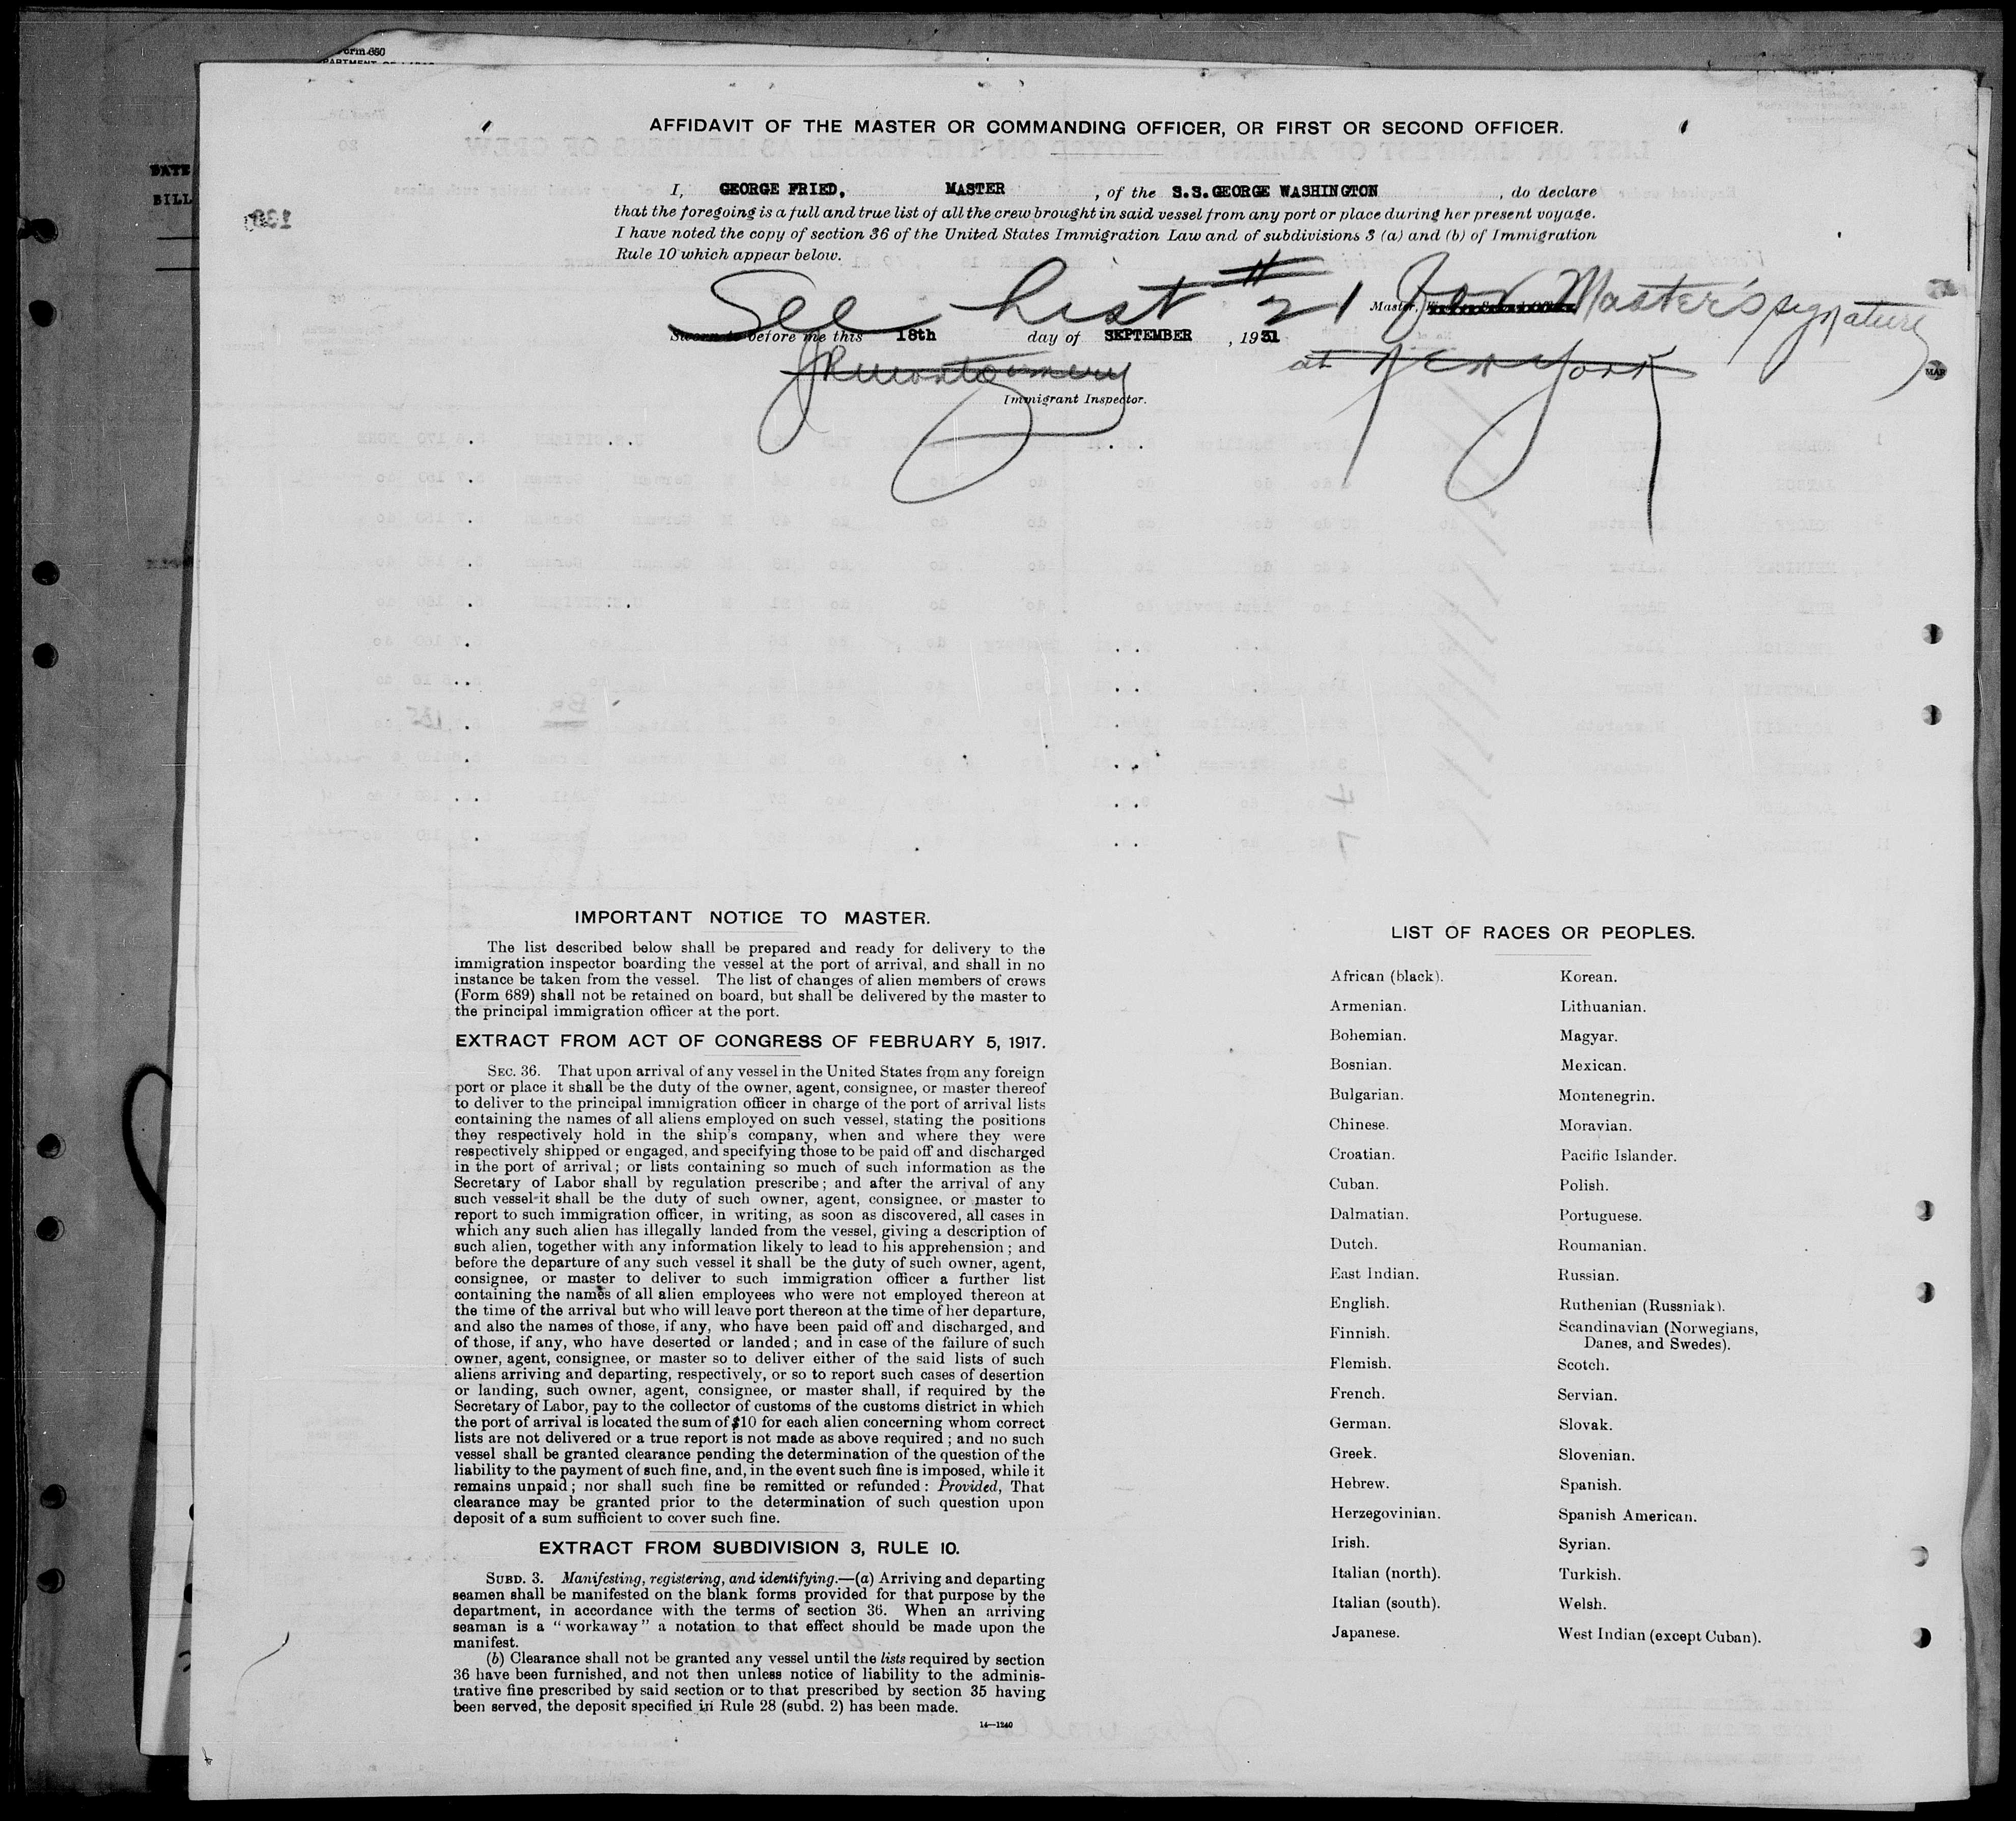 Form 680
AFFIDAVIT OF THE MASTER OR COMMANDING OFFICER, OR FIRST OR SECOND OFFICER.
I, GEORGE FRIED, MASTER, of the S.S. GEORGE WASHINGTON, do declare
that the foregoing is a full and true list of all the crew brought in said vessel from any port or place during her present voyage.
I have noted the copy of section 36 of the United States Immigration Law and of subdivisions 3 (a) and (b) of Immigration
Rule 10 which appear below.
See List # 21 For Master's signature
Master, First or Second Officer.
Sworn to before me this 18th day of SEPTEMBER, 1931
at New York
Immigrant Inspector.
DATE
BILL
MAR
IMPORTANT NOTICE TO MASTER.
The list described below shall be prepared and ready for delivery to the
immigration inspector boarding the vessel at the port of arrival, and shall in no
instance be taken from the vessel. The list of changes of alien members of crews
(Form 689) shall not be retained on board, but shall be delivered by the master to
the principal immigration officer at the port.
EXTRACT FROM ACT OF CONGRESS OF FEBRUARY 5, 1917.
SEC. 36. That upon arrival of any vessel in the United States from any foreign
port or place it shall be the duty of the owner, agent, consignee, or master thereof
to deliver to the principal immigration officer in charge of the port of arrival lists
containing the names of all aliens employed on such vessel, stating the positions
they respectively hold in the ship's company, when and where they were
respectively shipped or engaged, and specifying those to be paid off and discharged
in the port of arrival; or lists containing so much of such information as the
Secretary of Labor shall by regulation prescribe; and after the arrival of any
such vessel it shall be the duty of such owner, agent, consignee, or master to
report to such immigration officer, in writing, as soon as discovered, all cases in
which any such alien has illegally landed from the vessel, giving a description of
such alien, together with any information likely to lead to his apprehension; and
before the departure of any such vessel it shall be the duty of such owner, agent,
consignee, or master to deliver to such immigration officer a further list
containing the names of all alien employees who were not employed thereon at
the time of the arrival but who will leave port thereon at the time of her departure,
and also the names of those, if any, who have been paid off and discharged, and
of those, if any, who have deserted or landed; and in case of the failure of such
owner, agent, consignee, or master so to deliver either of the said lists of such
aliens arriving and departing, respectively, or so to report such cases of desertion
or landing, such owner, agent, consignee, or master shall, if required by the
Secretary of Labor, pay to the collector of customs of the customs district in which
the port of arrival is located the sum of $10 for each alien concerning whom correct
lists are not delivered or a true report is not made as above required; and no such
vessel shall be granted clearance pending the determination of the question of the
liability to the payment of such fine, and, in the event such fine is imposed, while it
remains unpaid; nor shall such fine be remitted or refunded: Provided, That
clearance may be granted prior to the determination of such question upon
deposit of a sum sufficient to cover such fine.
EXTRACT FROM SUBDIVISION 3, RULE 10.
SUBD. 3. Manifesting, registering, and identifying.—(a) Arriving and departing
seamen shall be manifested on the blank forms provided for that purpose by the
department, in accordance with the terms of section 36. When an arriving
seaman is a "workaway" a notation to that effect should be made upon the
manifest.
(b) Clearance shall not be granted any vessel until the lists required by section
36 have been furnished, and not then unless notice of liability to the adminis-
trative fine prescribed by said section or to that prescribed by section 35 having
been served, the deposit specified in Rule 28 (subd. 2) has been made.
14—1240
LIST OF RACES OR PEOPLES.
African (black).
Armenian.
Bohemian.
Bosnian.
Bulgarian.
Chinese.
Croatian.
Cuban.
Dalmatian.
Dutch.
East Indian.
English.
Finnish.
Flemish.
French.
German.
Greek.
Hebrew.
Herzegovinian.
Irish.
Italian (north).
Italian (south).
Japanese.
Korean.
Lithuanian.
Magyar.
Mexican.
Montenegrin.
Moravian.
Pacific Islander.
Polish.
Portuguese.
Roumanian.
Russian.
Ruthenian (Russniak).
Scandinavian (Norwegians,
Danes, and Swedes).
Scotch.
Servian.
Slovak.
Slovenian.
Spanish.
Spanish American.
Syrian.
Turkish.
Welsh.
West Indian (except Cuban).